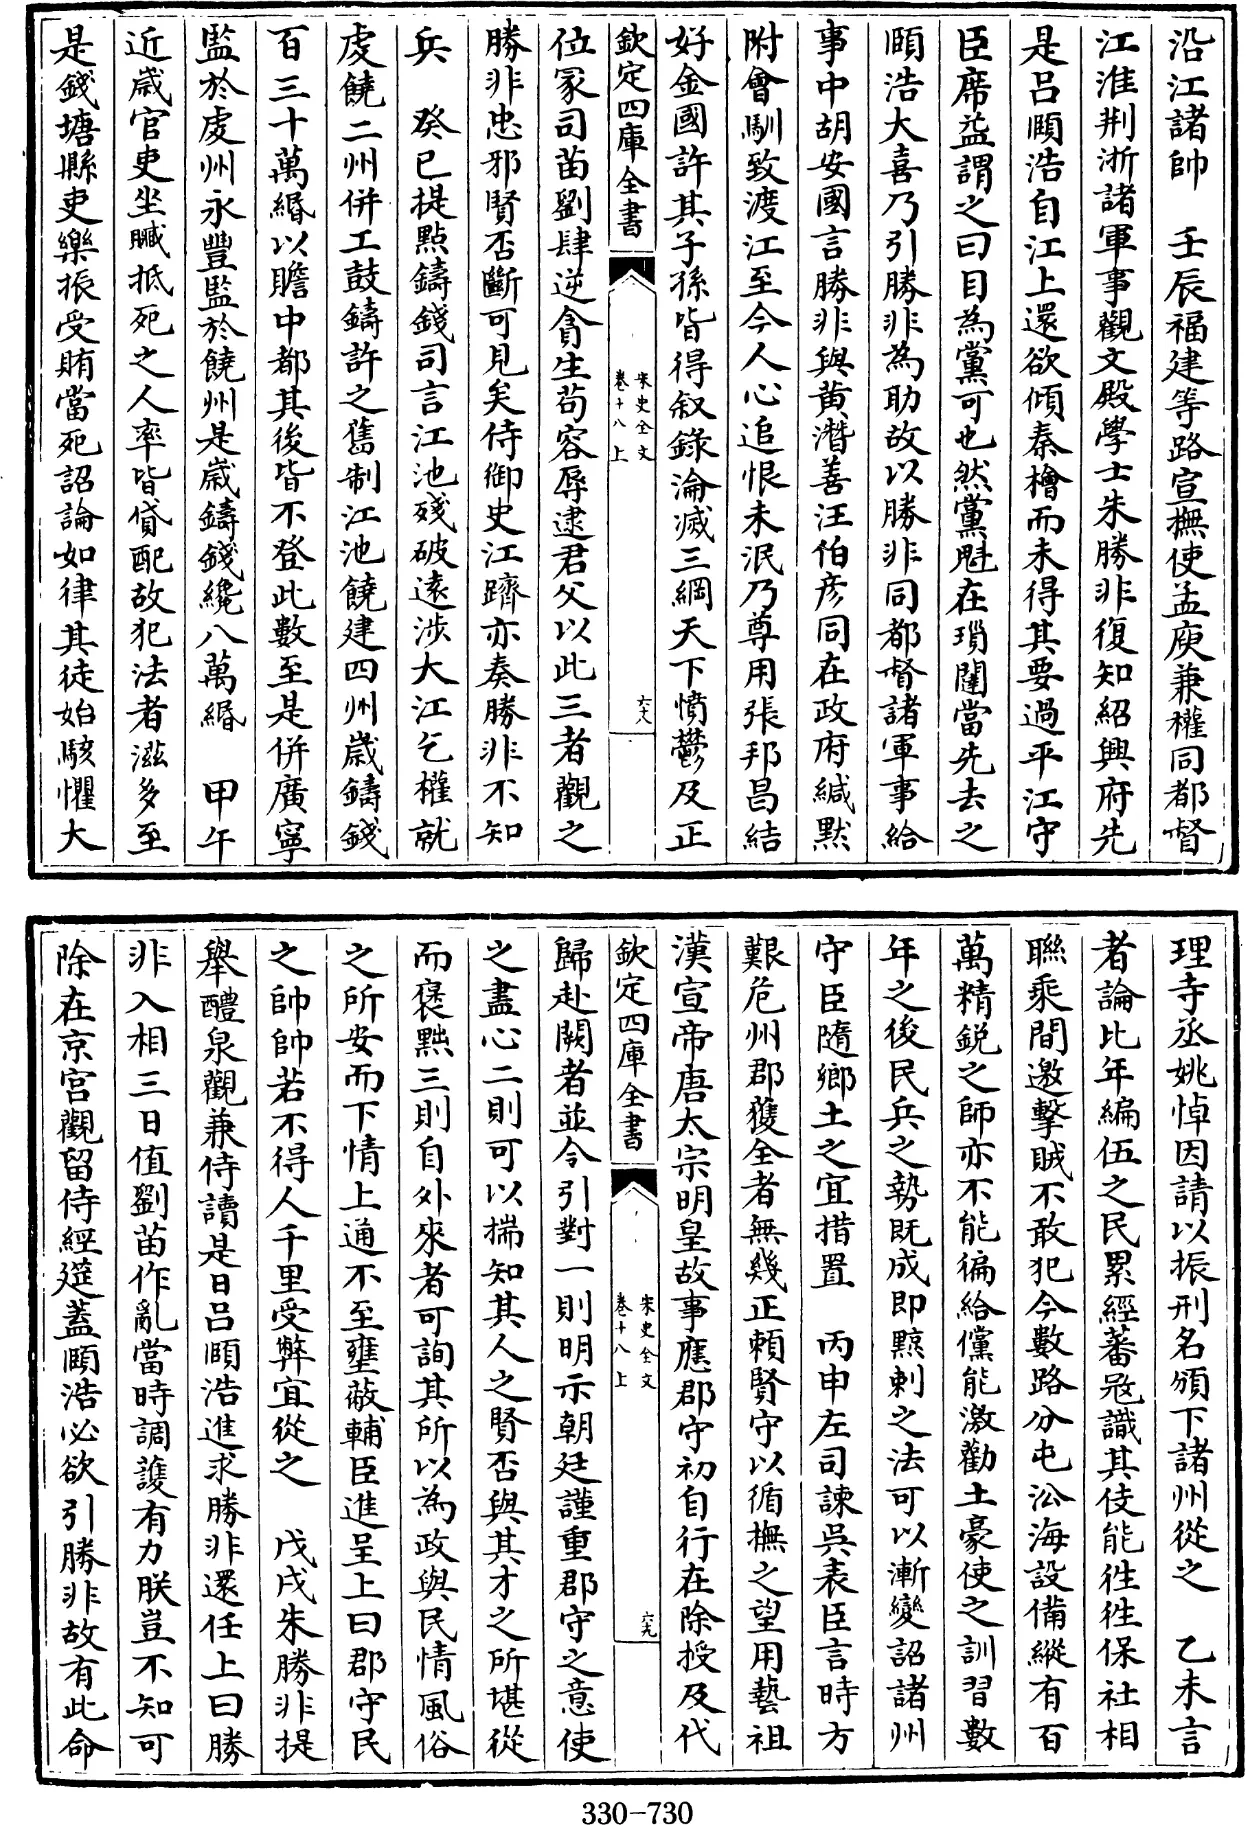 沿江諸帥　壬辰福建等路宣撫使孟庾兼權同都督
江淮荆浙諸軍事觀文殿學士朱勝非復知紹興府先
是吕頤浩自江上還欲傾秦檜而未得其要過平江守
臣席益謂之曰目為黨可也然黨魁在瑣闥當先去之
頤浩大喜乃引勝非為助故以勝非同都督諸軍事給
事中胡安國言勝非與黄潛善汪伯彦同在政府緘默
附會馴致渡江至今人心追恨未泯乃尊用張邦昌結
好金國許其子孫皆得叙錄淪滅三綱天下憤鬱及正
欽定四庫全書
宋史全文
卷十八上
六八
位冡司苗劉肆逆貪生苟容辱逮君父以此三者觀之
勝非忠邪賢否斷可見矣侍御史江躋亦奏勝非不知
兵　癸巳提點鑄錢司言江池殘破遠涉大江乞權就
虔饒二州併工鼓鑄許之舊制江池饒建四州歲鑄錢
百三十萬緡以贍中都其後皆不登此數至是併廣寧
監於虔州永豐監於饒州是歲鑄錢纔八萬緡　甲午
近歲官吏坐贓抵死之人率皆貸配故犯法者滋多至
是錢塘縣吏樂振受賄當死詔論如律其徒始駭懼大
理寺丞姚焯因請以振刑名頒下諸州從之　乙未言
者論比年編伍之民累經蕃㓂識其伎能徃徃保社相
聯乘間邀擊賊不敢犯今數路分屯㳂海設備縱有百
萬精鋭之師亦不能徧給儻能激勸土豪使之訓習數
年之後民兵之勢既成即㸃刺之法可以漸變詔諸州
守臣隨鄉土之宜措置　丙申左司諫吳表臣言時方
艱危州郡獲全者無幾正頼賢守以循撫之望用藝祖
漢宣帝唐太宗明皇故事應郡守初自行在除授及代
欽定四庫全書
宋史全文
卷十八上
六九
歸赴闕者並令引對一則明示朝廷謹重郡守之意使
之盡心二則可以揣知其人之賢否與其才之所堪從
而褒黜三則自外來者可詢其所以為政與民情風俗
之所安而下情上通不至壅蔽輔臣進呈上曰郡守民
之帥帥若不得人千里受弊宜從之　戊戌朱勝非提
舉醴泉觀兼侍讀是日吕頤浩進求勝非還任上曰勝
非入相三日值劉苗作亂當時調護有力朕豈不知可
除在京宫觀留侍經筵蓋頤浩必欲引勝非故有此命
330-730